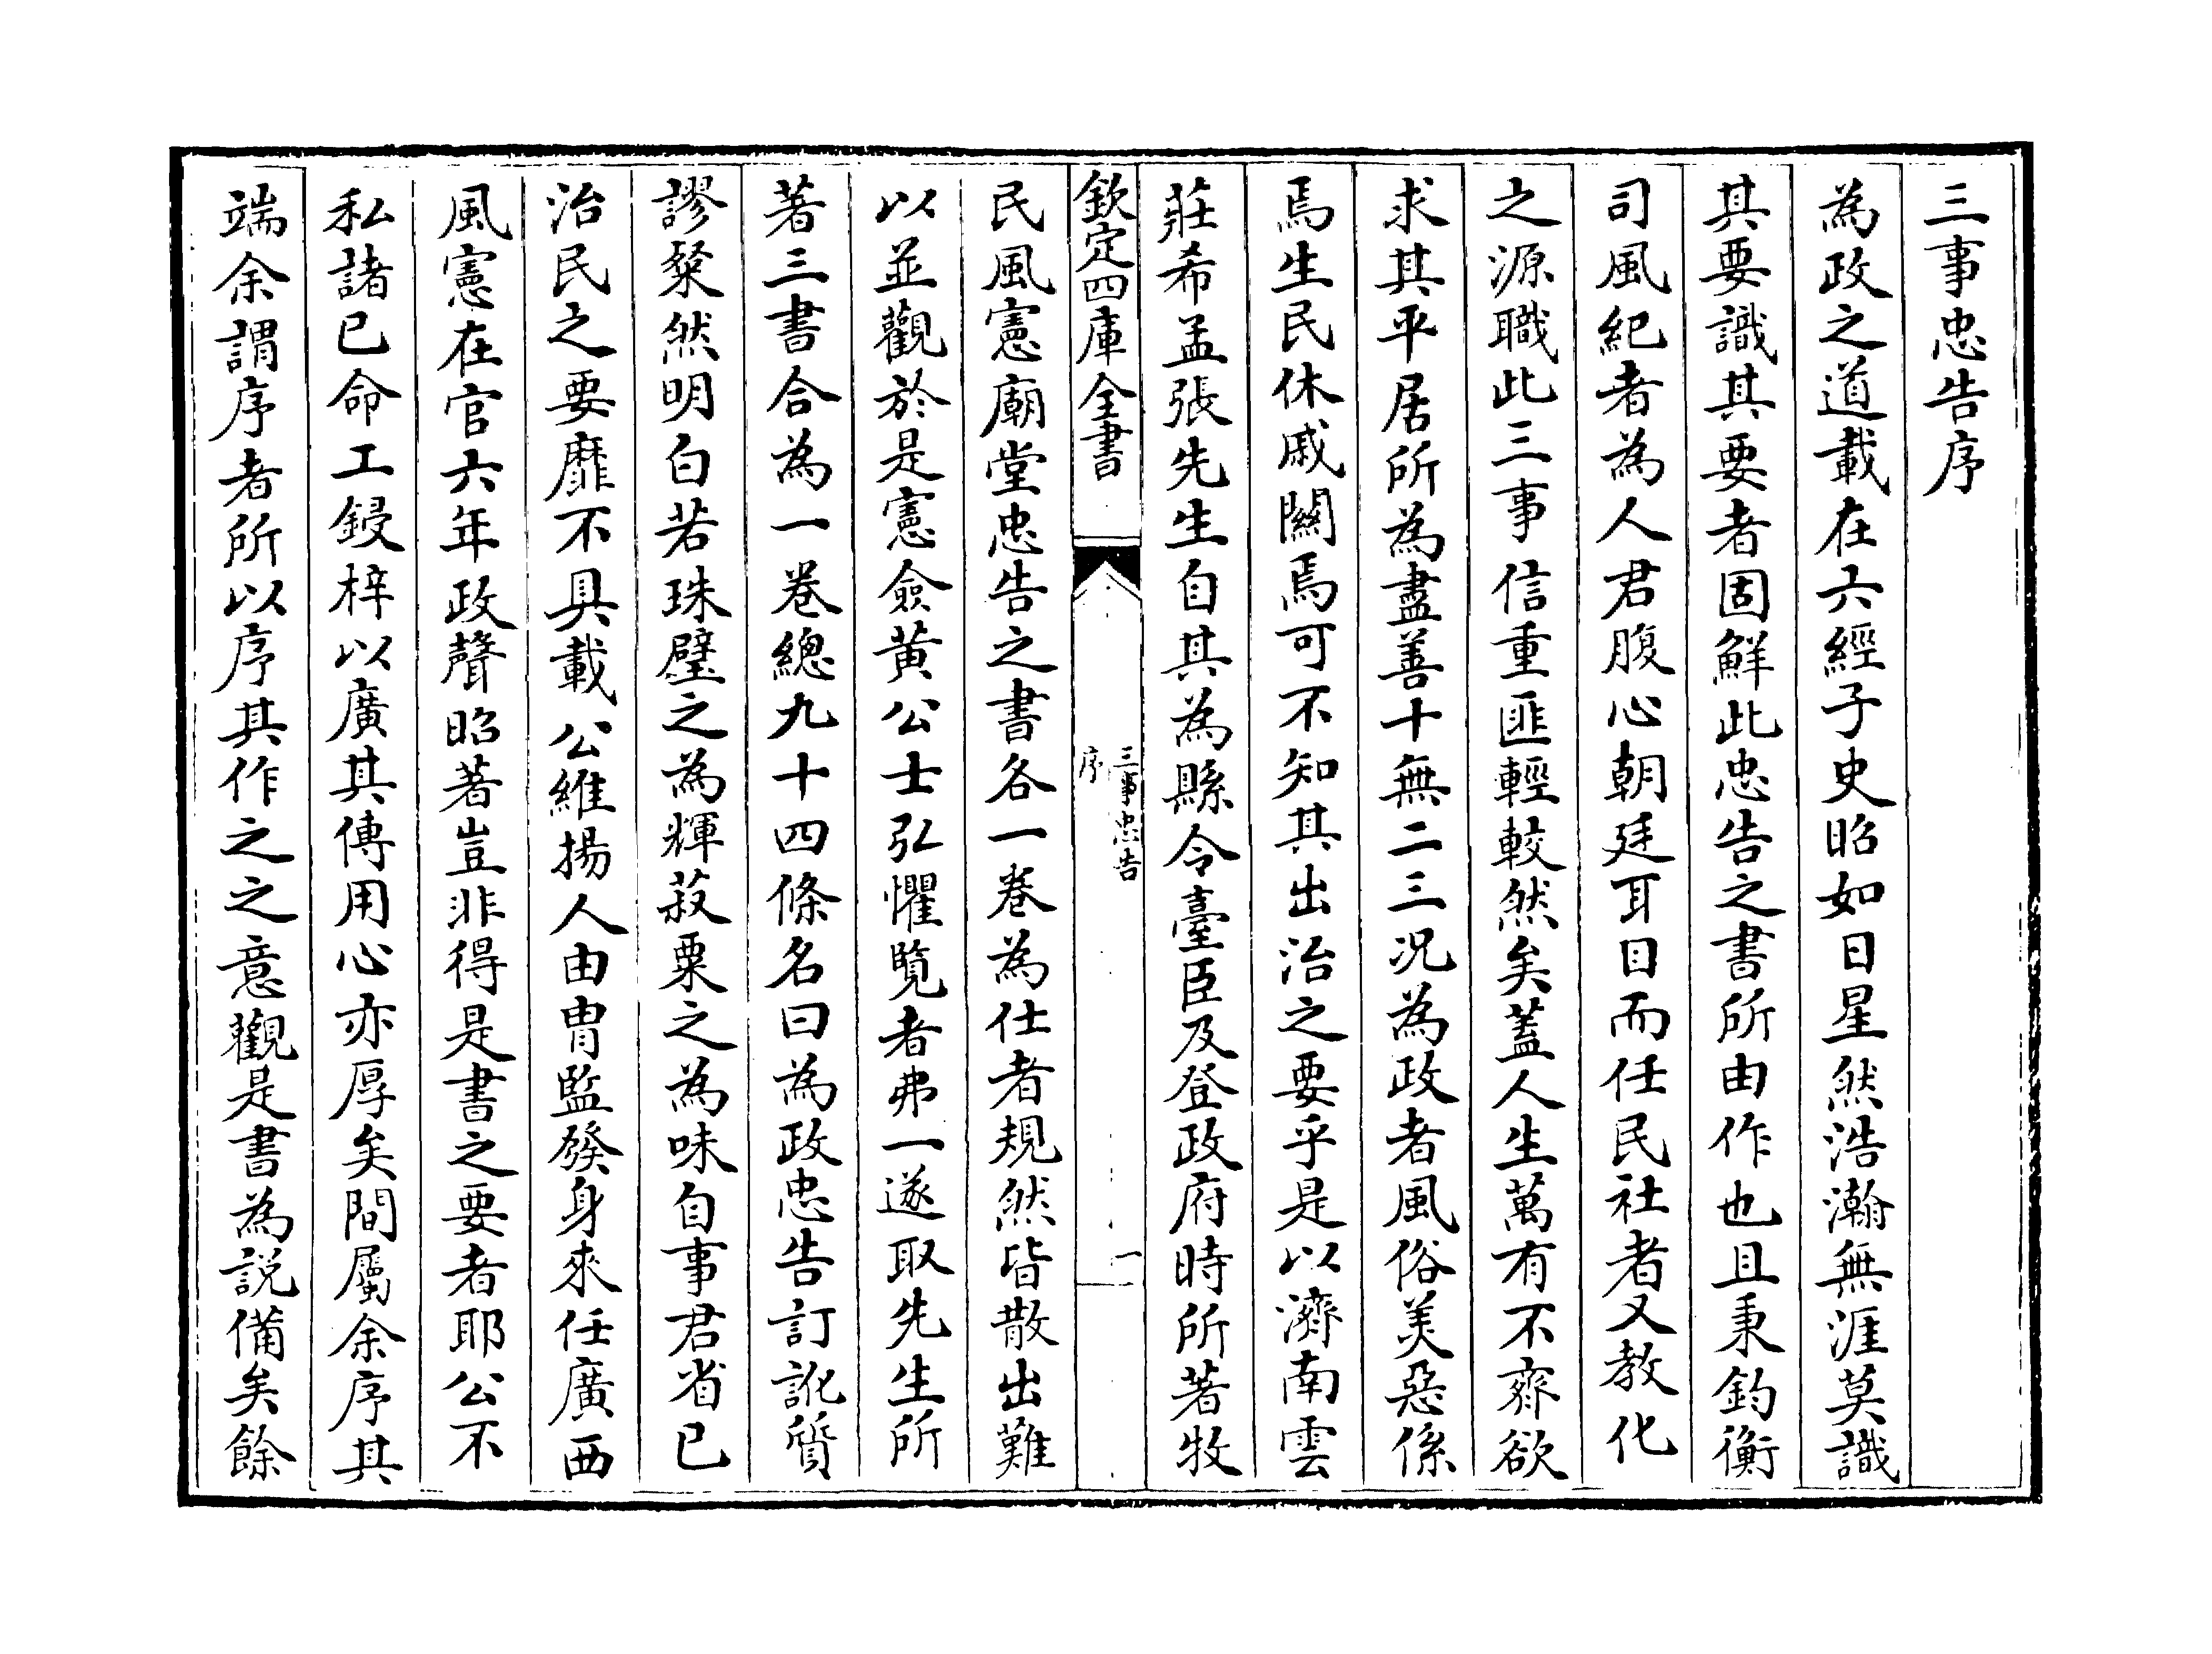 三事忠告序
為政之道載在六經子史昭如日星然浩瀚無涯莫識
其要識其要者固鮮此忠告之書所由作也且秉鈞衡
司風紀者為人君腹心朝廷耳目而任民社者又教化
之源職此三事信重匪輕較然矣蓋人生萬有不齊欲
求其平居所為盡善十無二三況為政者風俗美惡係
焉生民休戚關焉可不知其出治之要乎是以濟南雲
莊希孟張先生自其為縣令臺臣及登政府時所著牧
欽定四庫全書
三事忠告
序
一
民風憲廟堂忠告之書各一卷為仕者規然皆散出難
以並觀於是憲僉黃公士弘懼覽者弗一遂取先生所
著三書合為一卷總九十四條名曰為政忠告訂訛質
謬粲然明白若珠璧之為輝菽粟之為味自事君省已
治民之要靡不具載公維揚人由胄監發身來任廣西
風憲在官六年政聲昭著豈非得是書之要者耶公不
私諸已命工鋟梓以廣其傳用心亦厚矣間屬余序其
端余謂序者所以序其作之之意觀是書為說備矣餘